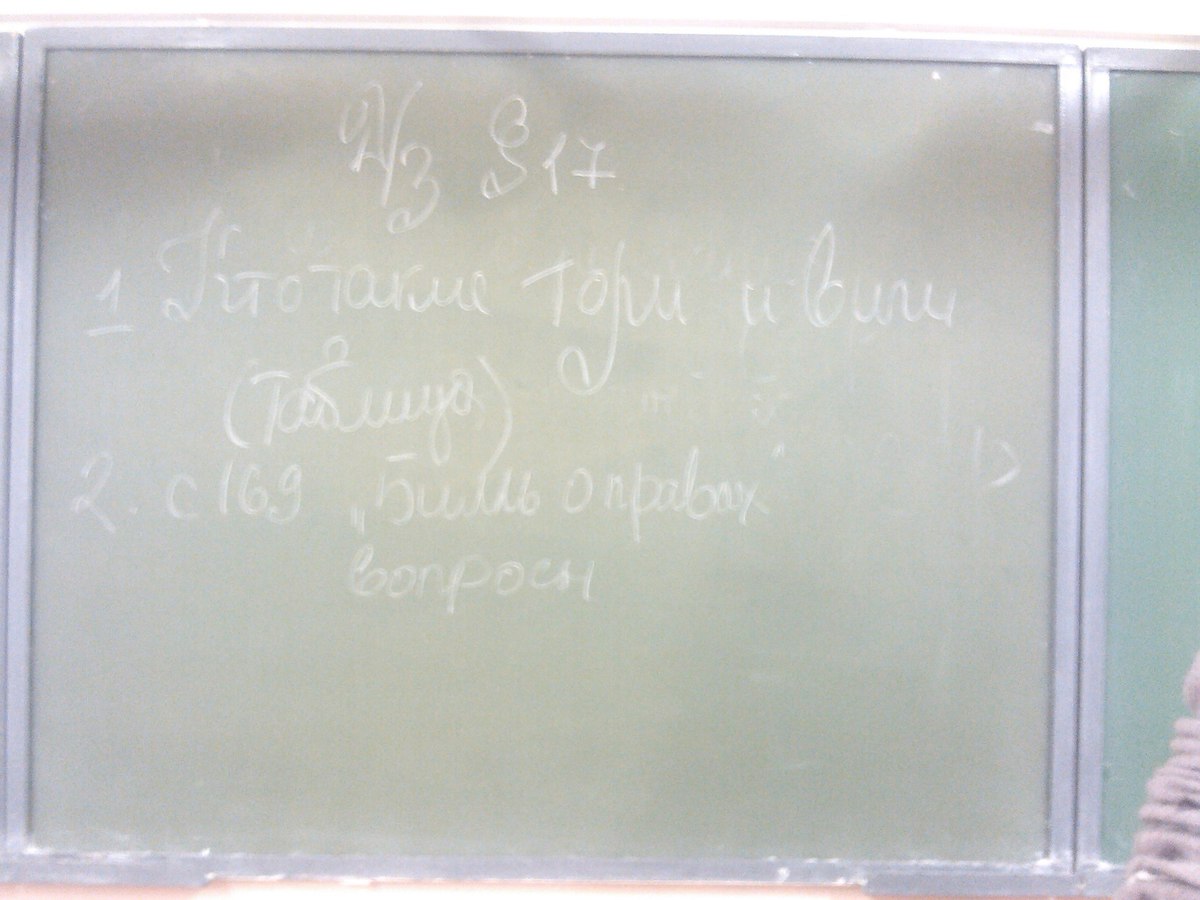 Д/З §17
1 Кто такие тори и виги
(таблица)
2. с 169 „Билль о правах"
вопросы